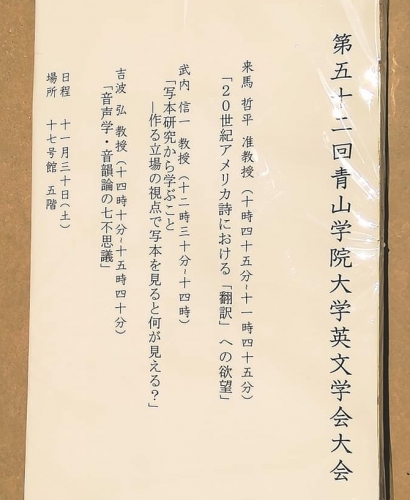 第五十二回青山学院大学英文学会大会
来馬 哲平 准教授（十時四十五分~十一時四十五分）
「２０世紀アメリカ詩における「翻訳」への欲望」
武内 信一 教授（十二時三十分~十四時）
「写本研究から学ぶこと
―作る立場の視点で写本を見ると何が見える？」
吉波 弘 教授（十四時十分~十五時四十分）
「音声学・音韻論の七不思議」
日程 十一月三十日（土）
場所 十七号館 五階